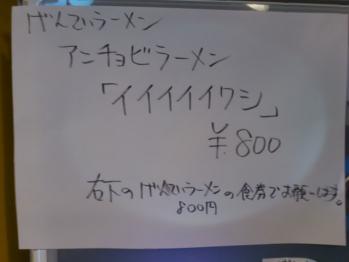 げんていラーメン
アンチョビラーメン
「イイイイイワシ」
¥800
右下のげんていラーメンの食券でお願いします。
800円